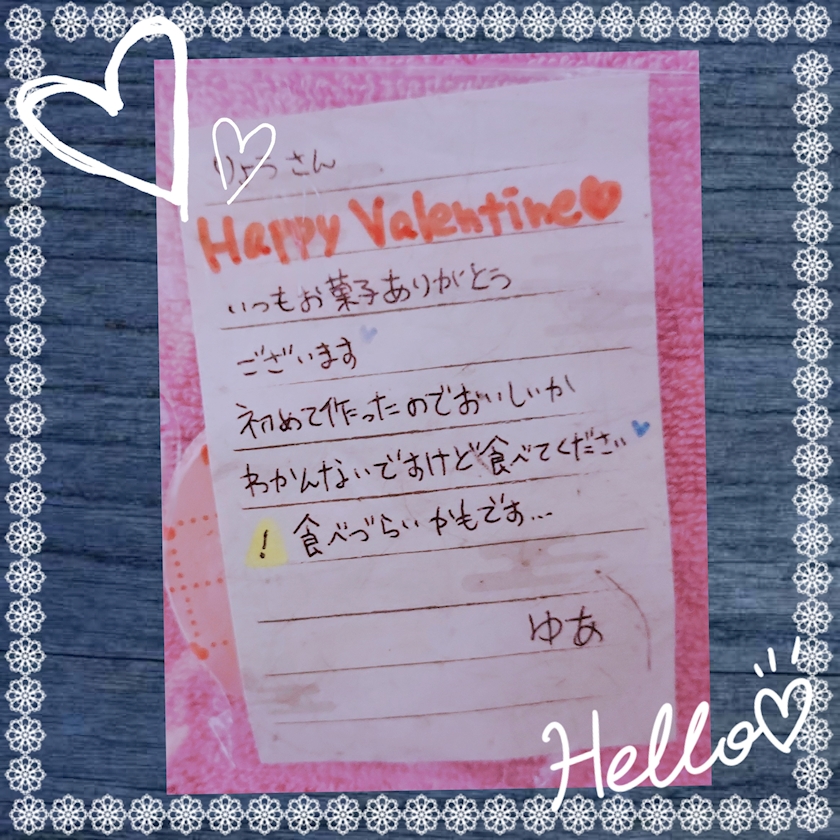 りょうさん
Happy Valentine♥
いつもお菓子ありがとう
ございます♥
初めて作ったのでおいしいか
わかんないですけど食べてください♥
! 食べづらいかもです...
ゆあ
Hello♡